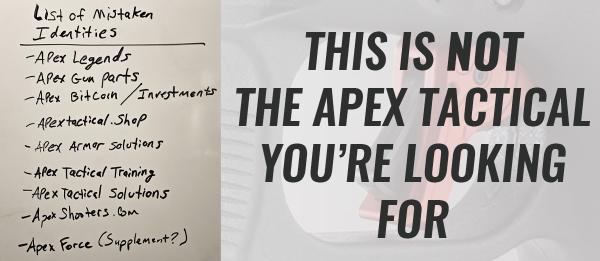 List of Mistaken
Identities
- Apex Legends
- Apex Gun parts
- Apex Bitcoin / Investments
- Apextactical.Shop
- Apex Armor Solutions
- Apex Tactical Training
- Apex Tactical Solutions
- ApexShooters.com
- Apex Force (Supplement?)
THIS IS NOT
THE APEX TACTICAL
YOU'RE LOOKING
FOR